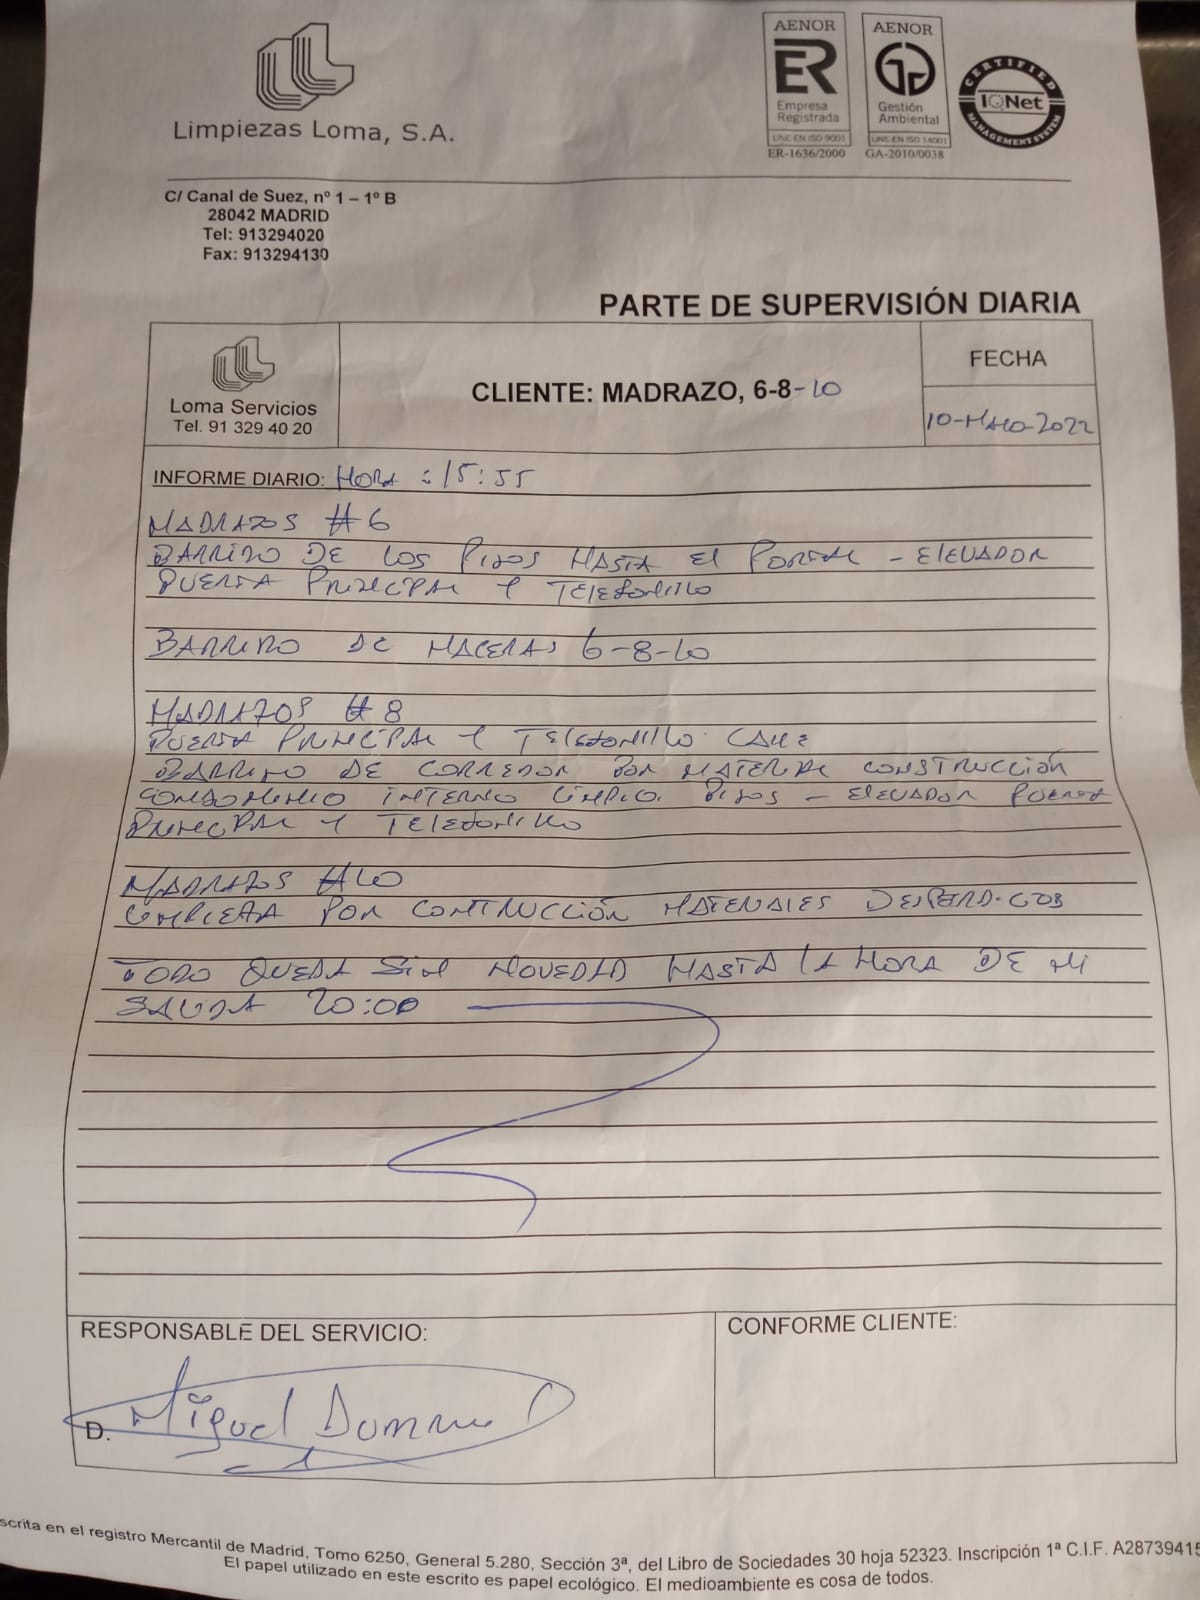 Limpiezas Loma, S.A.
AENOR
ER
Empresa
Registrada
UNE-EN ISO 9001
ER-1636/2000
AENOR
Gestión
Ambiental
UNE-EN ISO 14001
GA-2010/0038
CERTIFIED
IQNet
MANAGEMENT SYSTEM
C/ Canal de Suez, nº 1 – 1º B
28042 MADRID
Tel: 913294020
Fax: 913294130
PARTE DE SUPERVISIÓN DIARIA
Loma Servicios
Tel. 91 329 40 20
CLIENTE: MADRAZO, 6-8-10
FECHA
10-MAYO-2022
INFORME DIARIO: HORA : 15:55
MADRAZOS #6
BARRIDO DE LOS PISOS HASTA EL PORTAL - ELEVADOR
PUERTA PRINCIPAL Y TELEFONILLO
BARRIDO DE MACERAS 6-8-10
MADRAZOS #8
PUERTA PRINCIPAL Y TELEFONILLO CALLE
BARRIDO DE CORREDOR POR MATERIAL CONSTRUCCIÓN
CONDOMINIO INTERNO LIMPIO. PISOS - ELEVADOR PUERTA
PRINCIPAL Y TELEFONILLO
MADRAZOS #10
LIMPIEZA POR CONTRUCCIÓN MATERIALES DESPERDICIOS
TODO QUEDA SIN NOVEDAD HASTA LA HORA DE MI
SALIDA 20:00
RESPONSABLE DEL SERVICIO:
CONFORME CLIENTE:
D. Miguel
scrita en el registro Mercantil de Madrid, Tomo 6250, General 5.280, Sección 3ª, del Libro de Sociedades 30 hoja 52323. Inscripción 1ª C.I.F. A28739415
El papel utilizado en este escrito es papel ecológico. El medioambiente es cosa de todos.